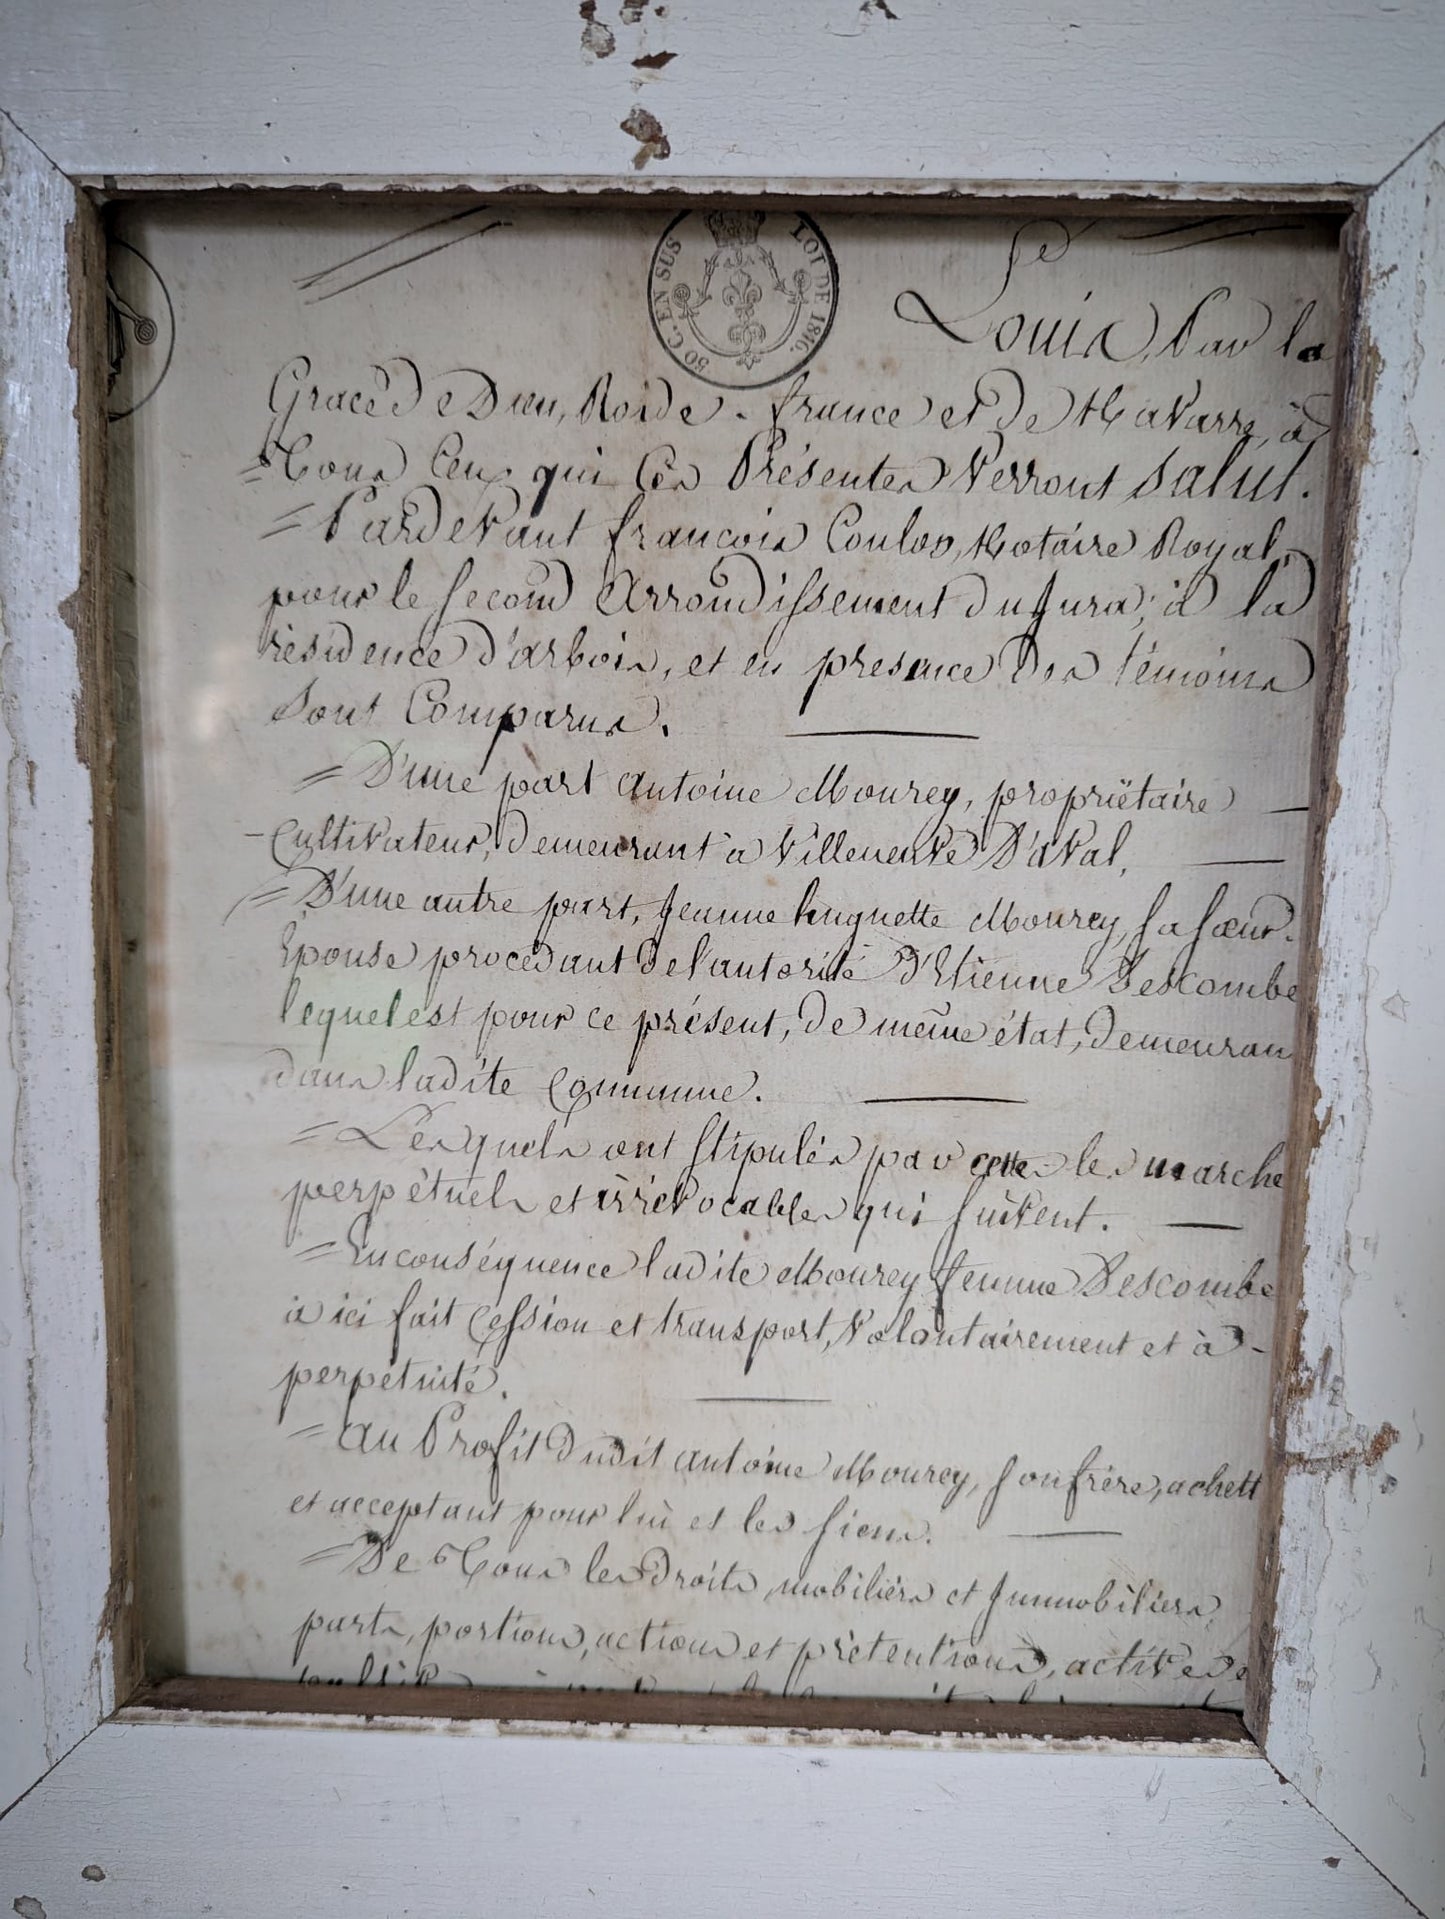 50 C. EN SUS LOI DE 1816.
Louis, Par la
Grace de Dieu, Roi de - france et de Navarre, à
= Tous Ceux qui Ces Présentes Verront Salut.
= Pardevant francois Coulon, Notaire Royal,
pour le second arrondissement du Jura, à la
résidence d'arbois, et en presence des témoins
sont Comparus.
= D'une part antoine Mourey, propriëtaire
- Cultivateur, demeurant à Villeneuve D'aval,
= D'une autre part, Jeanne huguette Mourey, sa sœur -
Epouse procédant de l'autorité D'Etienne Descombe
lequel est pour ce présent, de même état, demeuran
dans ladite Commune.
= Lesquels ont stipulés par cette les marche
perpétuels et irrévocables qui suivent.
= En conséquence ladite Mourey femme Descombe
à ici fait Cession et transport, Volontairement et à -
perpétuité.
= au Profit dudit antoine Mourey, son frère, achett
et acceptant pour lui et les siens.
= De Tous les droits, mobiliers et Immobiliers,
parts, portions, actions et prétentions, actives e